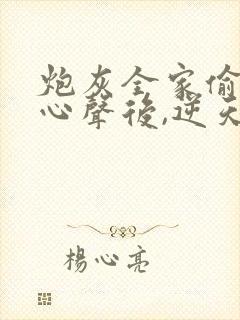 炮灰全家偷
心聲後,逆天
楊心亮